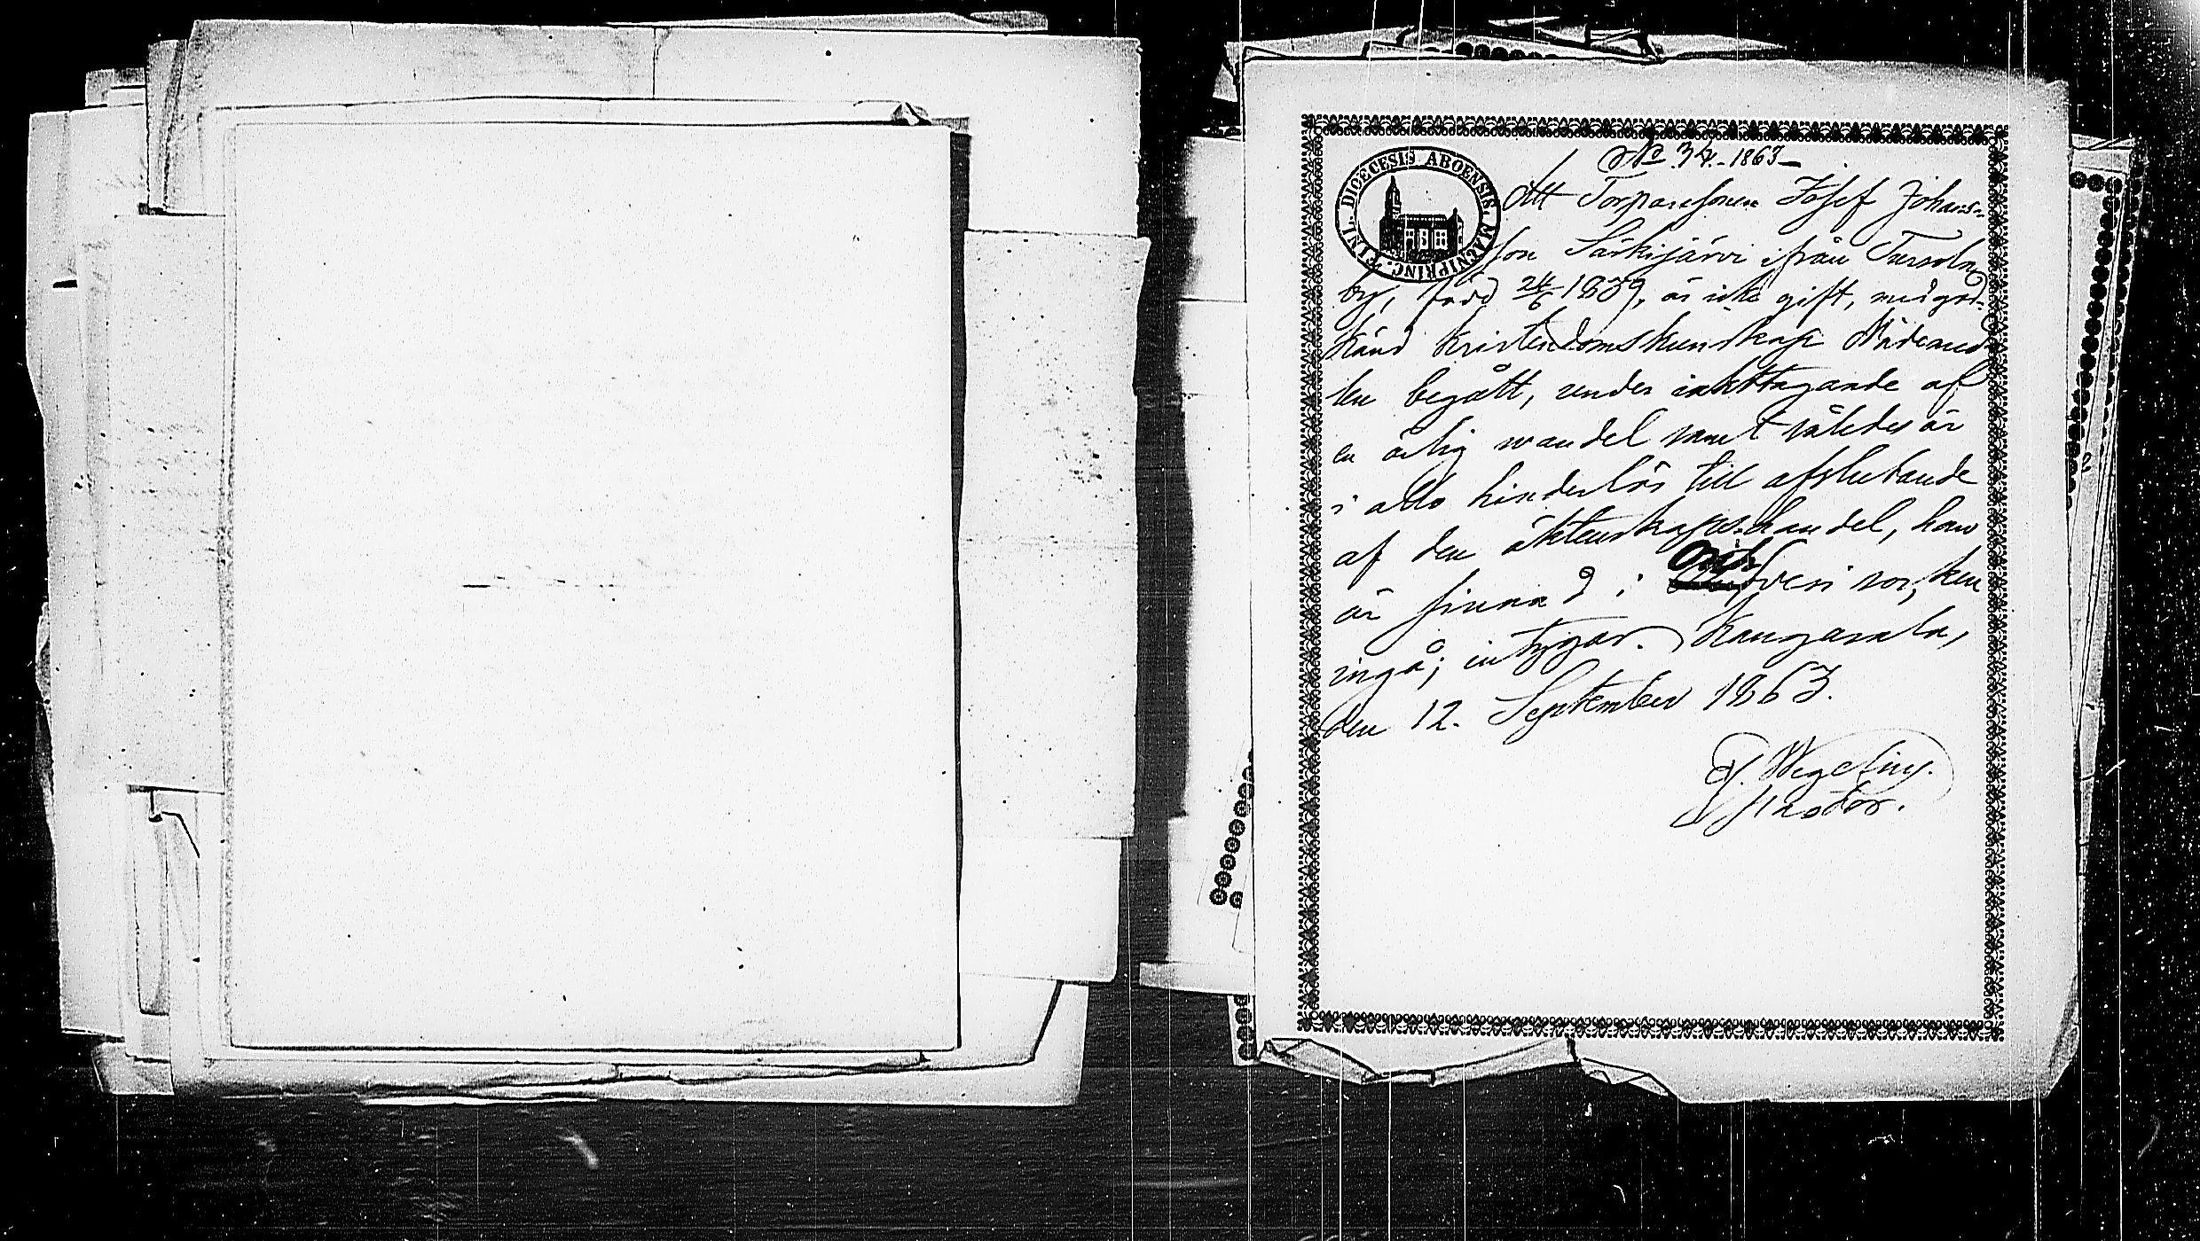 No 34.-1863-
FINL. DIOECESIS ABOENSIS. MAGNIPRINC.
Att Torparesonen Josef Johans-
son Särkijärvi ifrån Tursola
by, född 24/6 1839, är icke gift, med god-
känd kristendomskunskap Nådemed-
len begått, under iakttagande af
en ärlig wandel samt således är
i allo hinderlös till afslutande
af den äktenskapshandel, hvar-
är finnad i Orihvesi socken
ingå; intygar. Kangasala,
den 12. September 1863.
Wegelius.
Pastor.